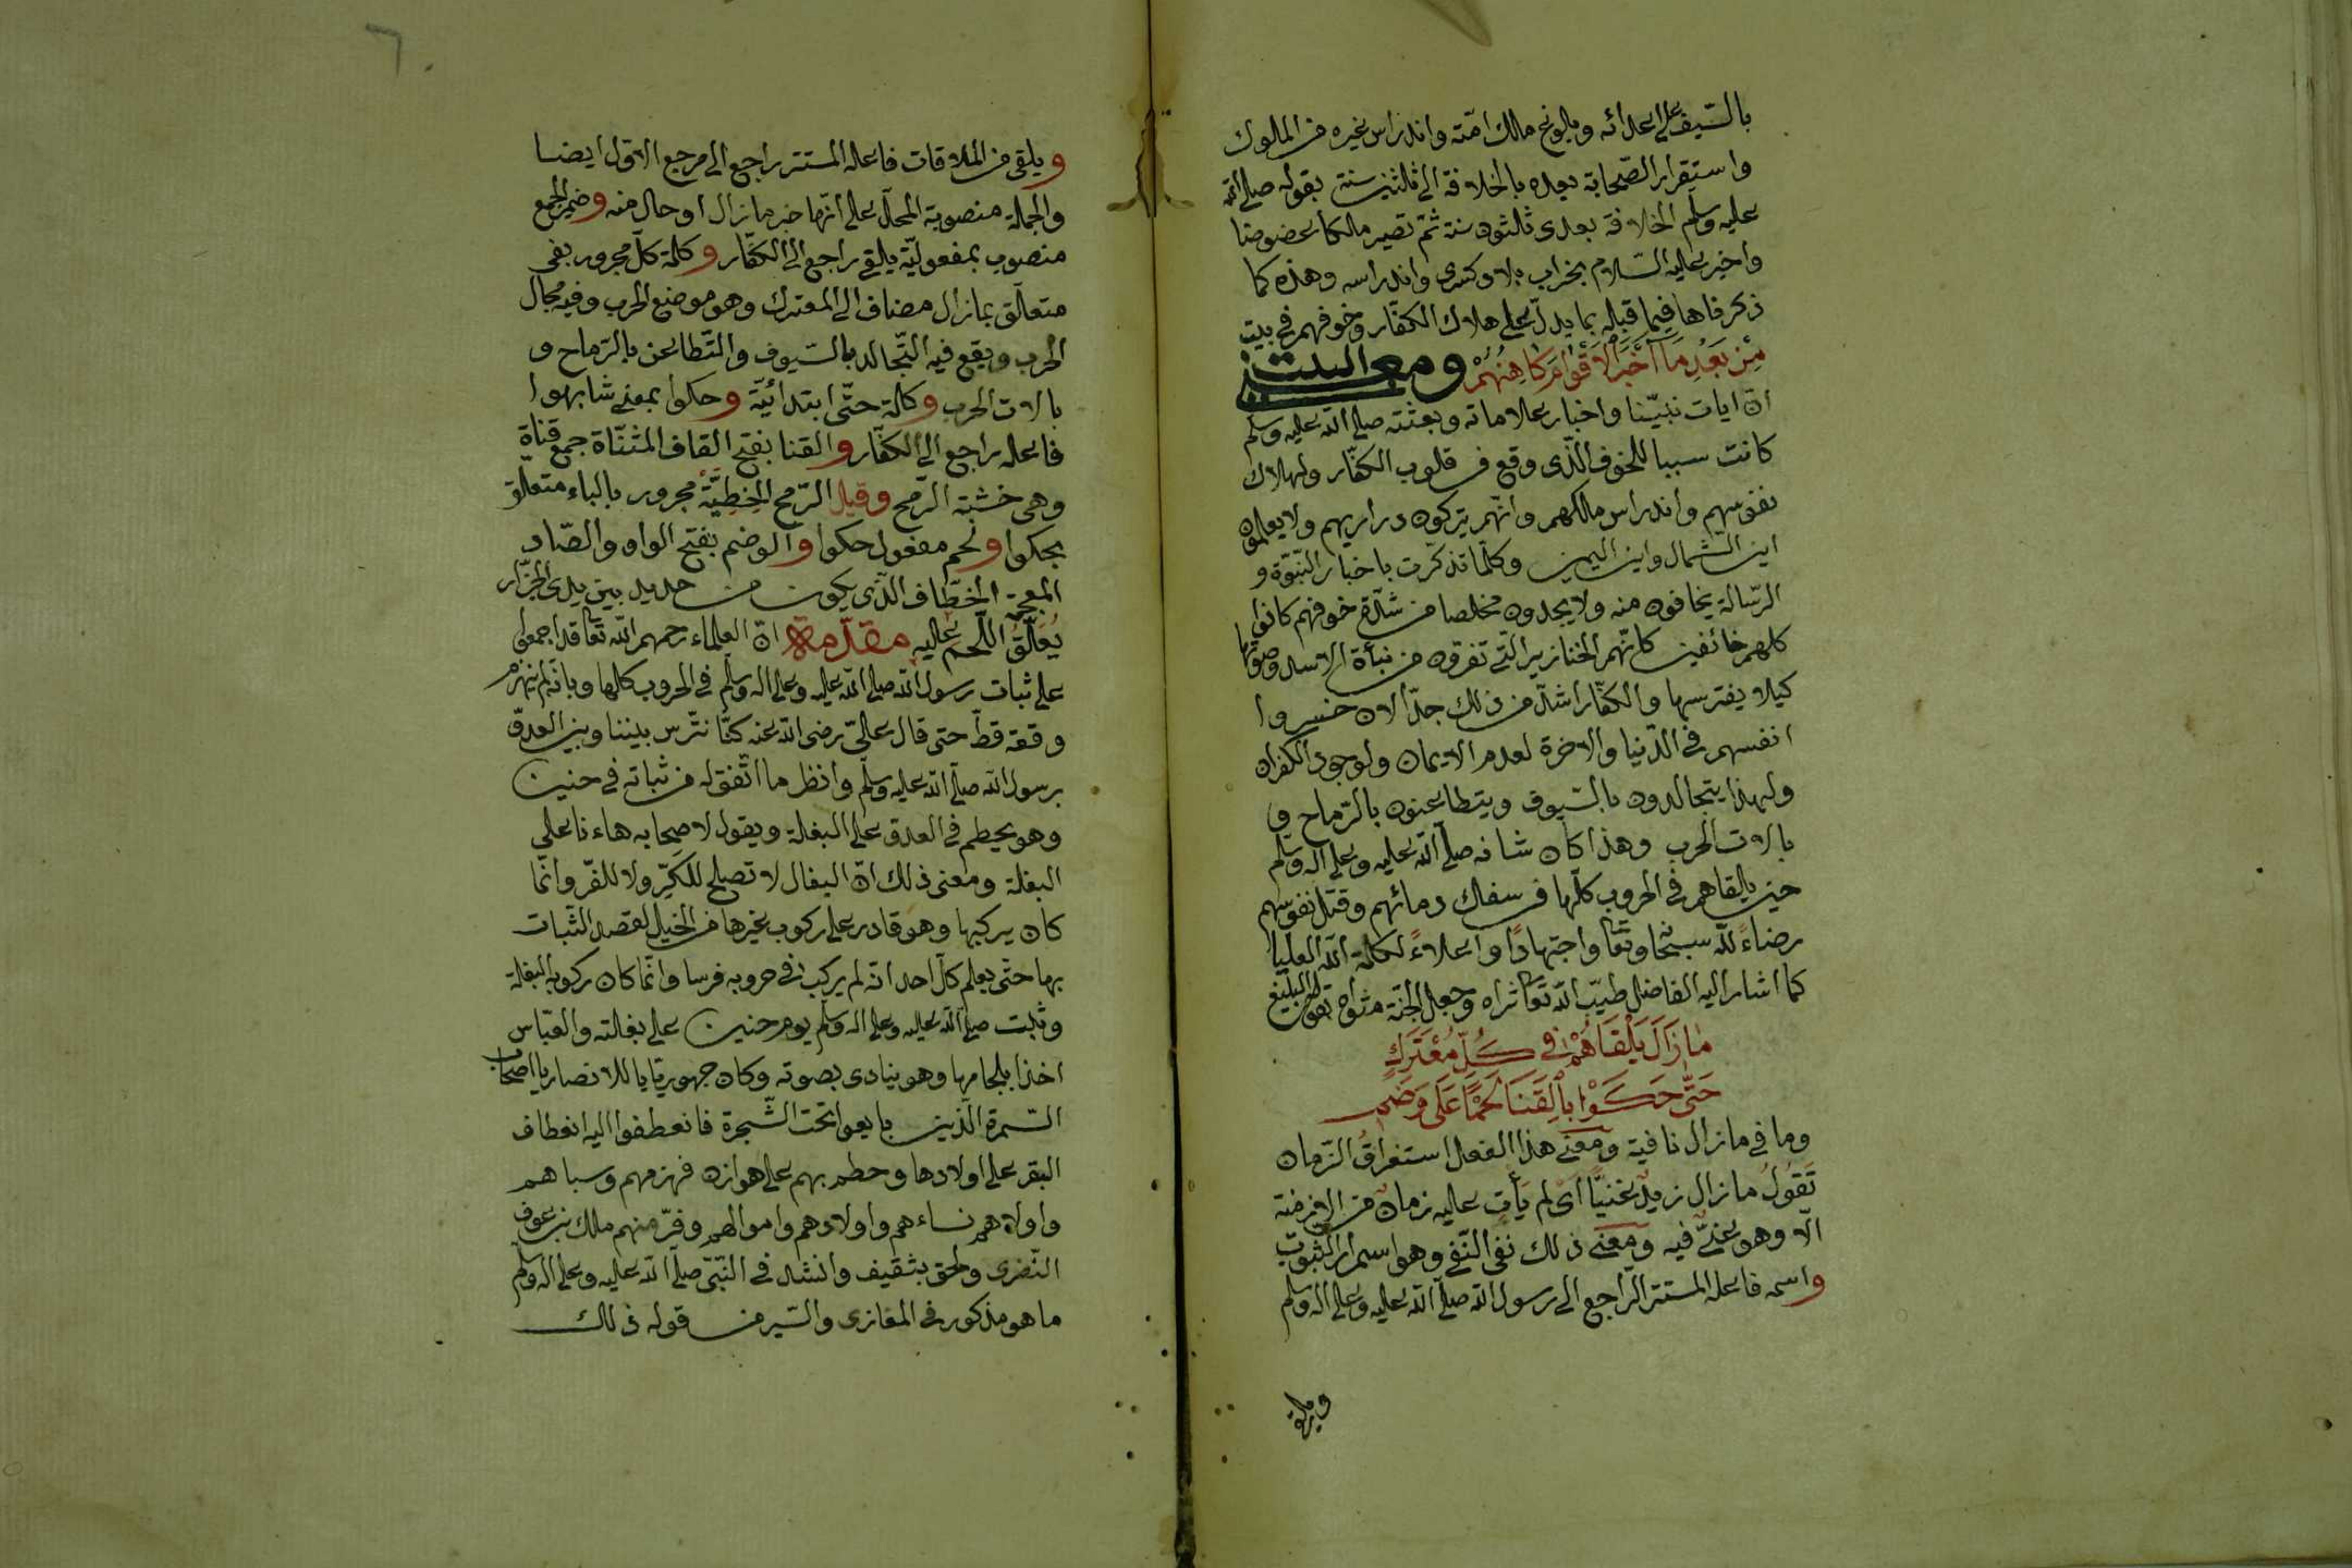 بالسّيف على اعدائه وبلوغ مالك امّته واندراس غيره من الملوك
واستقرار الصّحابة بعده بالخلافة الى ثلثين سنة بقوله صلى الله
عليه وسلم الخلافة بعدى ثلثون سنة ثمّ تصير مالكا عضوضا
واخبر عليه السّلام بخراب بلاد كسرى واندراسه وهذه كما
ذكرناها فيما قبله بما يدلّ على هلاك الكفّار وخوفهم فى بيت
مِنْ بَعْدِ مَا اَخْبَرَ الْاَقْوَامَ كَاهِنُهُمْ ومعنى البيت
انّ ايات نبيّنا واخبار علاماته وبعثته صلى الله عليه وسلم
كانت سببا للخوف الّذى وقع فى قلوب الكفّار ولهلاك
نفوسهم واندراس مالكهم وانّهم يتركون ذراريهم ولا يعلمون
اين الشّمال واين اليمين وكلّما تذكّرت باخبار النّبوّة و
الرّسالة يخافون منه ولا يجدون مخلصا من شدّة خوفهم كانوا
كلهم خائفين كانّهم الخنازير الّتى تفرقون من نبأة الاسد وصوتها
كيلا يفترسها والكفّار اشدّ من ذلك جدّا لان خسروا
انفسهم فى الدّنيا والاخرة لعدم الايمان ولوجود الكفران
ولهذا يتجالدون بالسّيوف ويتطاعنون بالرّماح و
بالات الحرب وهذا كان شانه صلّى الله عليه وعلى اله وسلّم
حين يلقاهم فى الحروب كلّها من سفك دمائهم وقتل نفوسهم
رضاءً للّه سبحا وتعا واجتهادًا واعلاءً لكلمة الله العليا
كما اشار اليه الفاضل طيّب الله تعا ثراه وجعل الجنّة مثواه بقوله البليغ
مَا زَالَ يَلْقَاهُمْ فِى كُلِّ مُعْتَرَكٍ
حَتَّى حَكَوْا بِالْقَنَا لَحْمًا عَلَى وَضَمِ
وما فى ما زال نافية ومعنى هذا الفعل استغراق الزّمان
تَقُولُ ما زال زيدٌ غنيًّا اى لم يأت عليه زمان من الازمنة
الّا وهو غنىٌّ فيه ومعنى ذلك نفى النّفى وهو استمرار الثبوت
واسمه فاعله المستتر الرّاجع الى رسول الله صلّى الله عليه وعلى اله وسلم
ويلقى
ويلقى من الملاقات فاعله المستتر راجع الى مرجع الاوّل ايضا
والجملة منصوبة المحلّ على انّها خبر ما زال او حال منه وضمير الجمع
منصوب بمفعوليّة يلقى راجع الى الكفّار وكلمة كلّ مجرور بفى
متعلّق بما زال مضاف الى المعترك وهو موضع الحرب وفيه مجال
الحرب ويقع فيه التّجالد بالسّيوف والتّطاعن بالرّماح و
بالات الحرب وكلمة حتّى ابتدائيّة وحكوا بمعنى شابهوا
فاعله راجع الى الكفّار والقنا بفتح القاف المثنّاة جمع قناة
وهى خشبة الرّمح وقيل الرّمح الخِطِّيَّةُ مجرور بالباء متعلّق
بحكوا ولحم مفعول حكوا والوضم بفتح الواو والضّاد
المعجمة الخطّاف الّذى يكون من حديد بين يدى الجزّار
يُعَلَّقُ اللّحم عليه مقدّمة انّ العلماء رحمهم الله تعا قد اجمعوا
على ثبات رسول الله صلى الله عليه وعلى اله وسلم فى الحروب كلها وبانّه لم ينهزم
وقعة قطّ حتى قال علىّ رضى الله عنه كنّا نترّس بيننا وبين العدوّ
برسول الله صلّى الله عليه وسلّم وانظر ما اتّفق له من ثباته فى حنين
وهو يحطم فى العدوّ على البغلة ويقول لاصحابه هاءنا على
البغلة ومعنى ذلك انّ البغال لا تصلح للكَرِّ ولا للفرّ وانّما
كان يركبها وهو قادر على ركوب غيرها من الخيل لقصد الثّبات
بها حتّى يعلم كلّ احد انّه لم يركب فى حروبه فرسا وانّما كان ركوبه البغلة
وثبت صلّى الله عليه وعلى اله وسلّم يوم حنين على بغلته والعبّاس
اخذا بلجامها وهو ينادى بصوته وكان جهوريّا يا للانصار يا اصحاب
السّمرة الّذين بايعوا تحت الشّجرة فانعطفوا اليه انعطاف
البقر على اولادها وحطم بهم على هوازن فهزمهم وسباهم
واولاهم نساءهم واولادهم واموالهم وفرّ منهم ملك بن عوف
النّضرى ولحق بثقيف وانشد فى النّبىّ صلّى الله عليه وعلى اله وسلّم
ما هو مذكور فى المغازى والسّير من قوله ذلك